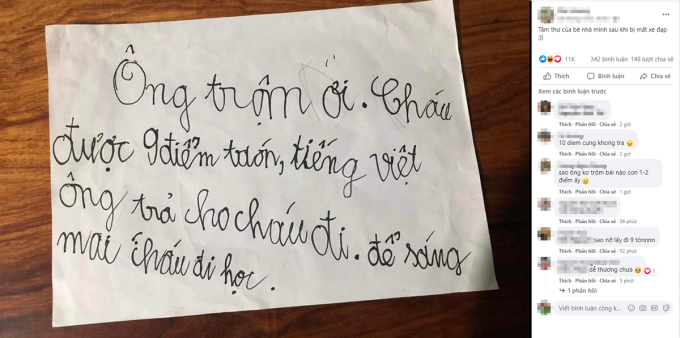 Ông trộm ơi. Cháu
được 9 điểm toán, tiếng việt
ông trả cho cháu đi. để sáng
mai cháu đi học.
Tâm thư của bé nhà mình sau khi bị mất xe đạp
:))
11K 342 bình luận 148 lượt chia sẻ
Thích Bình luận Chia sẻ
Xem các bình luận trước
Thích · Phản hồi · Chia sẻ · 2 giờ
10 diem cung khong tra
Thích · Phản hồi · Chia sẻ · 2 giờ
sao ông ko trộm bài nào con 1-2
điểm ấy
Thích · Phản hồi · Chia sẻ · 1 giờ
Thích · Phản hồi · Chia sẻ · 56 phút
sao nỡ lấy đi 9 tónnnn
Thích · Phản hồi · Chia sẻ · 52 phút
dễ thương chưa 1
Thích · Phản hồi · Chia sẻ · 5 phút
1 phản hồi
Viết bình luận công k...